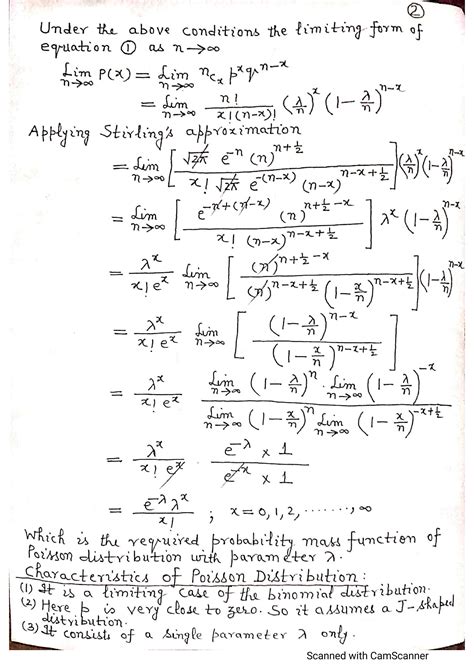 ②
Under the above conditions the limiting form of
equation ① as n→∞
Lim_{n→∞} P(x) = Lim_{n→∞} n_{c_x} p^x q^{n-x}
= Lim_{n→∞} n!/(x!(n-x)!) (λ/n)^x (1-λ/n)^{n-x}
Applying Stirling's approximation
= Lim_{n→∞} [√2π e^{-n} (n)^{n+1/2} / (x! √2π e^{-(n-x)} (n-x)^{n-x+1/2})] (λ/n)^x (1-λ/n)^{n-x}
= Lim_{n→∞} [e^{-n+(n-x)} (n)^{n+1/2-x} / (x! (n-x)^{n-x+1/2})] λ^x (1-λ/n)^{n-x}
= λ^x/(x! e^x) Lim_{n→∞} [(n)^{n+1/2-x} / ((n)^{n-x+1/2} (1-x/n)^{n-x+1/2})] (1-λ/n)^{n-x}
= λ^x/(x! e^x) Lim_{n→∞} [(1-λ/n)^{n-x} / (1-x/n)^{n-x+1/2}]
= λ^x/(x! e^x) Lim_{n→∞} (1-λ/n)^n . Lim_{n→∞} (1-λ/n)^{-x} / Lim_{n→∞} (1-x/n)^n Lim_{n→∞} (1-x/n)^{-x+1/2}
= λ^x/(x! e^x) . e^{-λ} × 1 / e^{-x} × 1
= e^{-λ} λ^x / x! ; x = 0, 1, 2, ........, ∞
Which is the required probability mass function of
Poisson distribution with parameter λ.
Characteristics of Poisson Distribution :
(1) It is a limiting case of the binomial distribution.
(2) Here p is very close to zero. So it assumes a J-shaped
distribution.
(3) It consists of a single parameter λ only.
Scanned with CamScanner